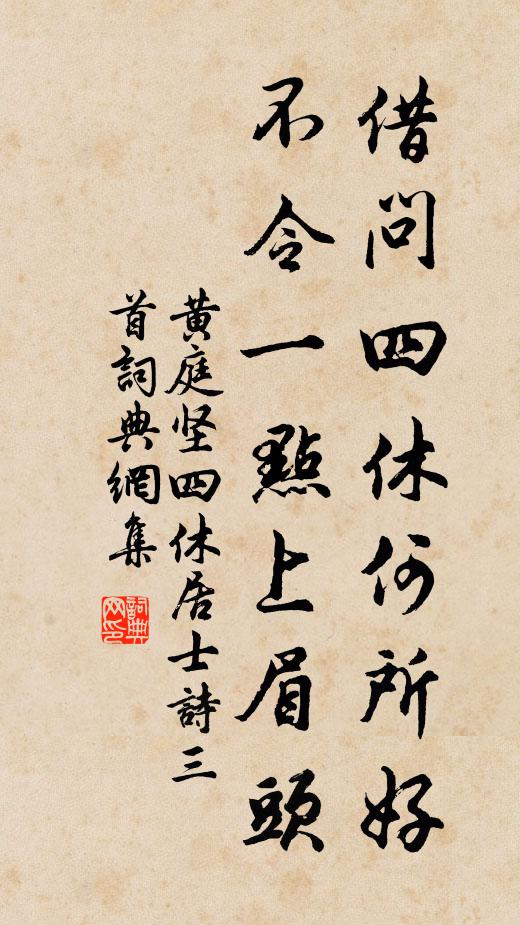 借問四休何所好
不令一點上眉頭
黄庭坚四休居士詩三
首詞典網集
詞典网印